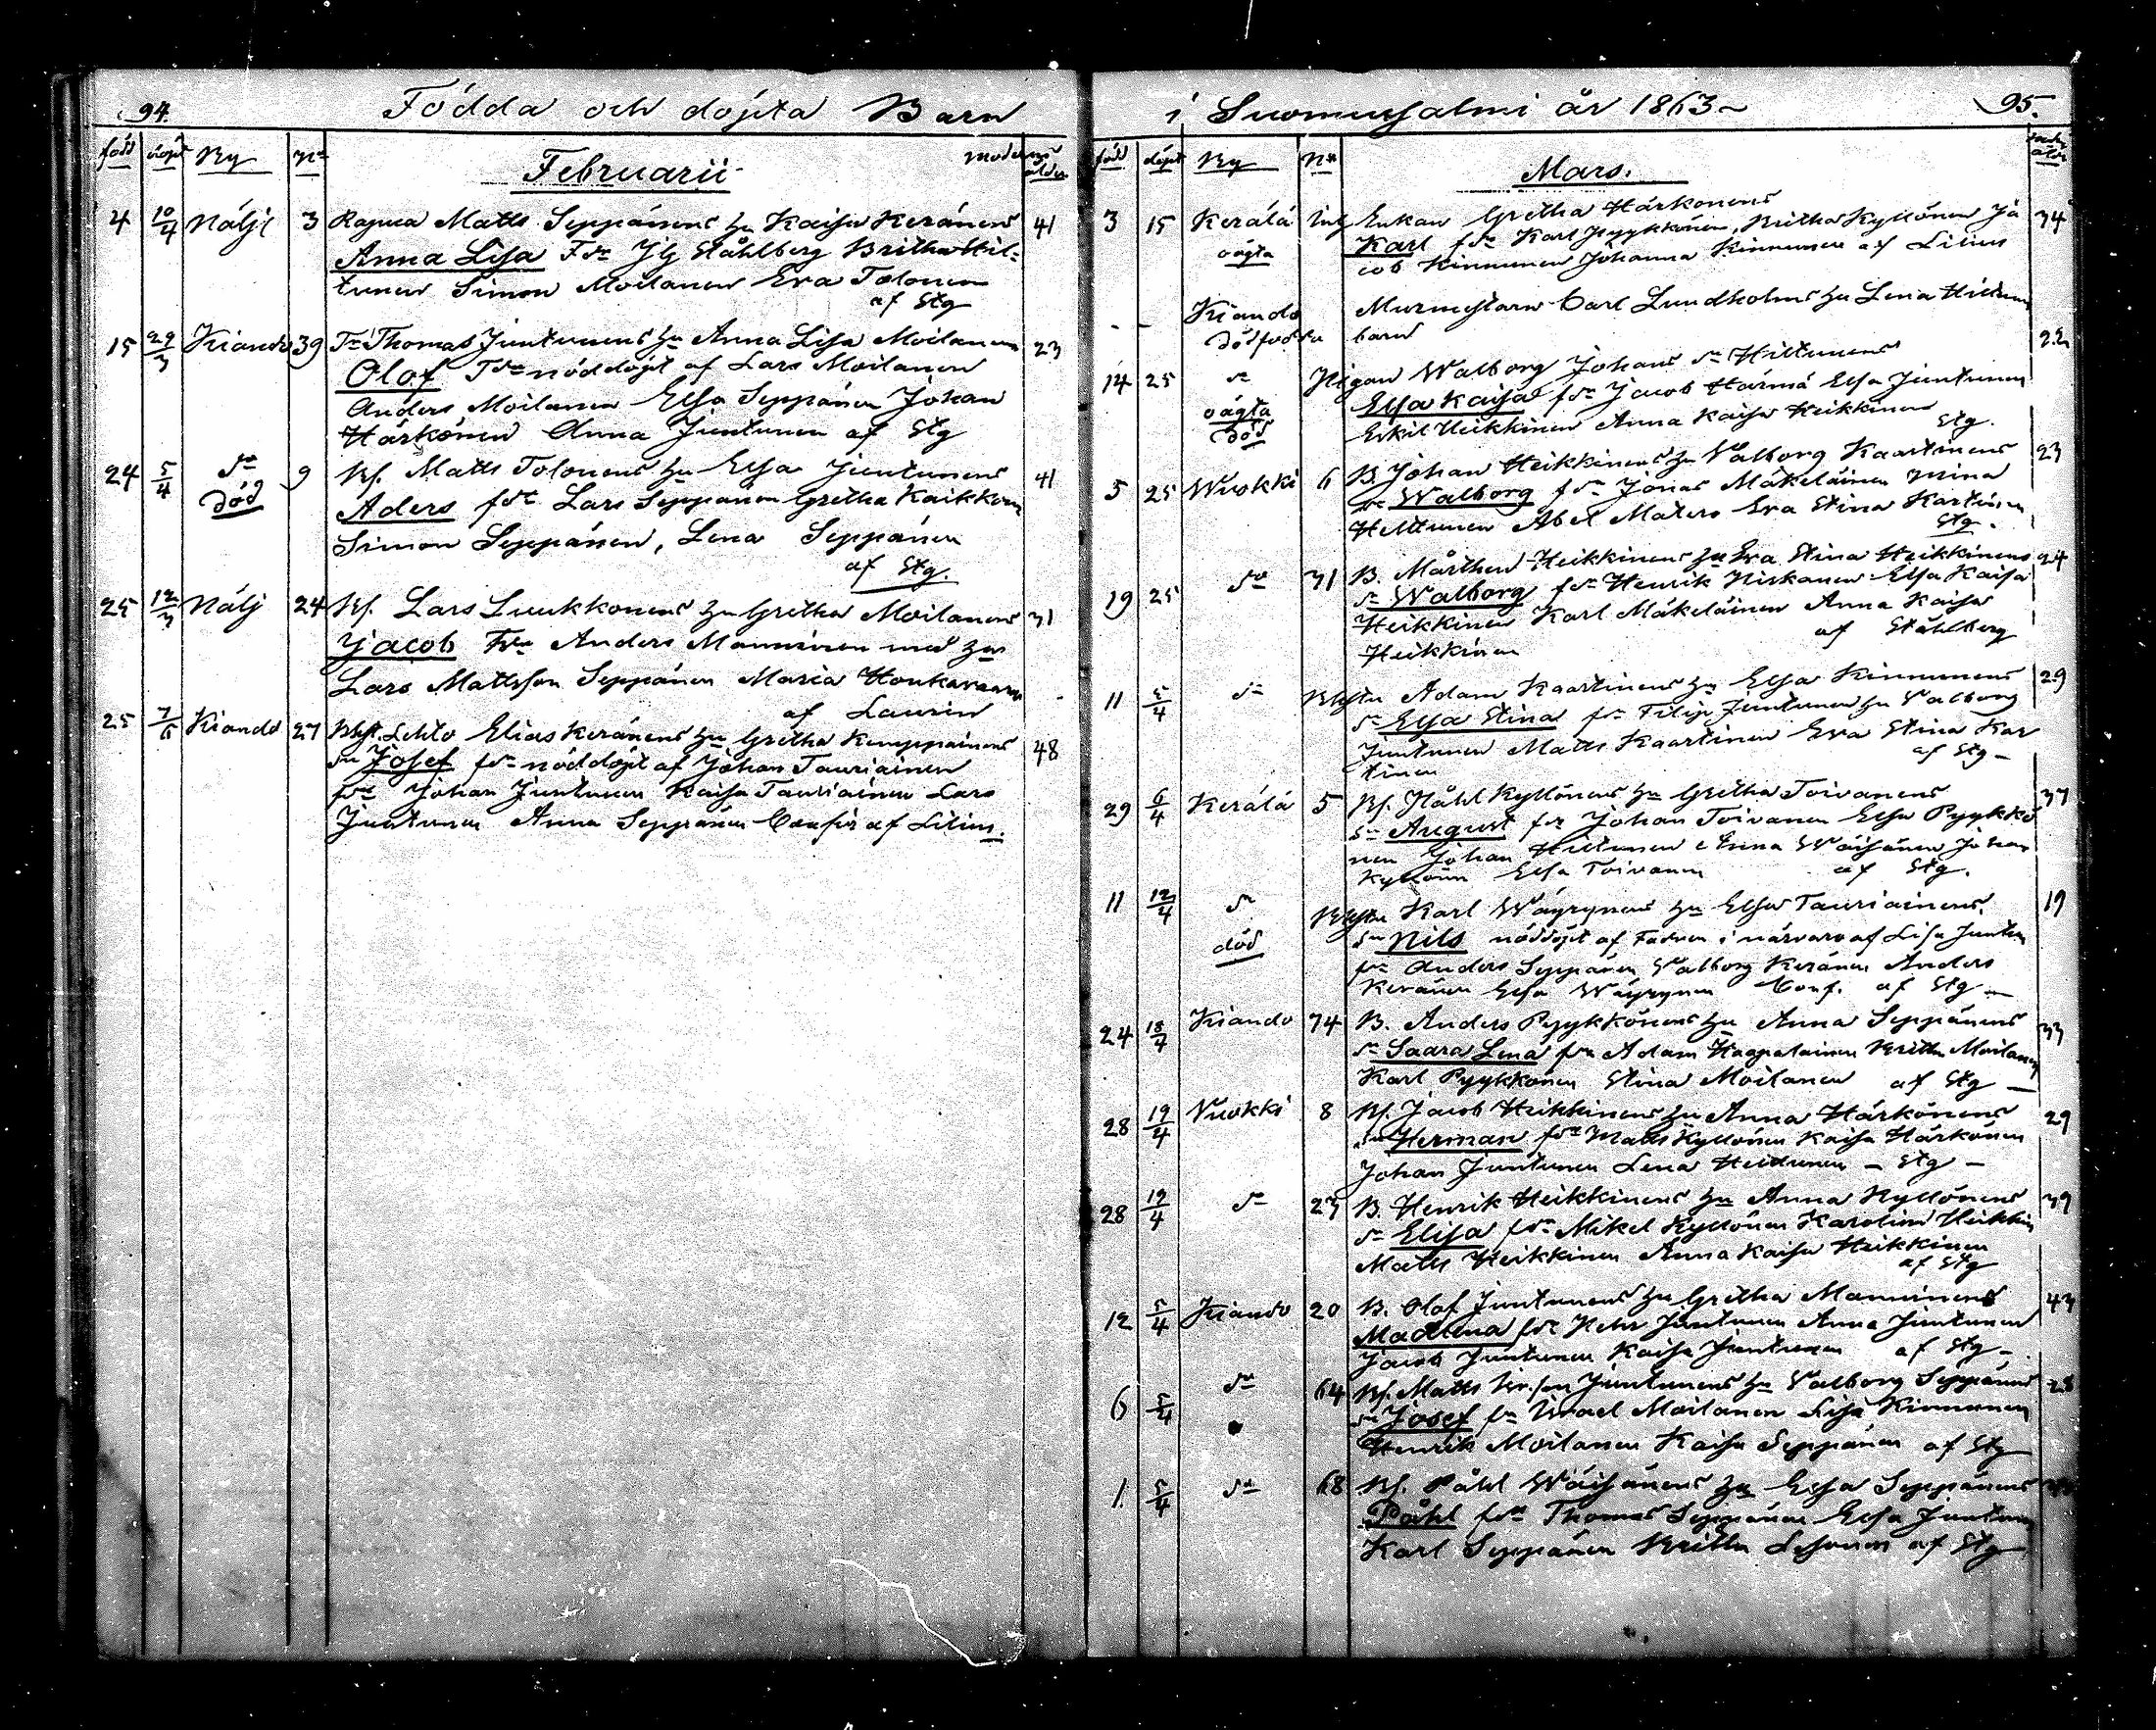 94. Födda och döpta Barn
född döpt By No moderns ålder
Februarii
4 10/4 Näljä 3 Matts Seppänens hu Kaisa Keränens 41
Anna Lisa Fdr Ståhlberg Britha Hil-
tunen Simon Moilanen Eva Tolonen
af Stg
15 29/3 Kiando 39 Thomas Juntunens hu Anna Lisa Moilanens 23
Olof Fdr nöddöpt af Lars Moilanen
Anders Moilanen Elsa Seppänen Johan
Härkönen Anna Juntunen af Stg
24 5/4 do 9 Bf. Matts Tolonens hu Elsa Juntunens 41
död Aders fdr Lars Seppänen Gretha Kaikkonen
Simon Seppänen, Lena Seppänen
af Stg.
25 12/3 Nälj 24 Bf. Lars Luukkonens hu Gretha Moilanens 31
Jacob Fdr Anders Manninen med hu
Lars Mattsson Seppänen Maria Honkavaara
af Laurin
25 7/6 Kiando 27 Lehto Elias Keränens hu Gretha Kemppainens 48
dn Josef fdr nöddöpt af Johan Tauriainen
fdr Johan Juntunen Kaisa Tauriainen Lars
Juntunen Anna Seppänen Confir af Lilius.
i Suomusalmi år 1863 95.
född döpt By No ålder
Mars.
3 15 Kerälä Inh Enkan Gretha Härkönens 34
oägta Karl fdr Karl Pyykkönen, Britha Kyllönen Ja
cob Kinnunen Johanna Kinnunen af Lilius
- - Kiando Murmestarn Carl Lundholms hu Lena Hiltunens
dödfödda barn 22
14 25 do Pigan Walborg Johans dr Hiltunens
oägta Elsa Kaisa fdr Jacob Härmä Elsa Juntunen
död Erkil Heikkinen Anna Kaisa Heikkinen Stg.
5 25 Wuokki 6 B. Johan Heikkinens hu Valborg Kaartinens 23
dr Walborg fdr Jonas Mäkeläinen Stina
Heltunen Abel Matero Eva Stina Kartinen
Stg.
19 25 do 31 B. Mårthen Heikkinens hu Eva Stina Heikkinens 24
dr Walborg fdr Henrik Kiskanen Elsa Kaisa
Heikkinen Karl Mäkeläinen Anna Kaisa
Heikkinen af Ståhlberg
11 5/4 do Adam Kaartinens hu Elsa Kinnunens 29
dr Elsa Stina fdr Filip Juntunen hu Valborg
Juntunen Matts Kaartinen Eva Stina Kar
tinen af Stg
29 6/4 Kerälä 5 Bf. Påhl Kyllönens hu Gretha Toivanens 37
dn August fdr Johan Toivanen Elsa Pyykkö
nen Johan Hiltunen Väisänen Johan
Kyllönen Elsa Toivanen af Stg.
11 12/4 do Karl Wäyrynens hu Elsa Tauriainens. 19
död dn Nils nöddöpt af Fadren i närvaro af Lisa Juntun
fdr Anders Seppänen Valborg Keränen Anders
Keränen Elsa Wäyrynen Conf. af Stg
24 18/4 Kiando 74 B. Anders Pyykkönens hu Anna Seppänens 33
dr Saara Lena fdr Adam Haapalainen Britha Moilanen
Karl Pyykkönen Stina Moilanen af Stg
28 19/4 Vuokki 8 Bf. Jacob Heikkinens hu Anna Härkönens 29
dn Herman fdr Matts Kyllönen Kaisa Härkönen
Johan Juntunen Lena Heldunen - Stg -
28 19/4 do 23 B. Henrik Heikkinens hu Anna Kyllönens 39
dr Elisa fdr Mikel Kyllönen Karolina Heikkin
Matts Heikkinen Anna Kaisa Heikkinen
af Stg
12 5/4 Kiando 20 B. Olof Juntunens hu Gretha Manninens 43
Madlena fdr Petr Juntunen Anna Juntunen
Jacob Juntunen Kaisa Juntunen af Stg
6 5/4 do 64 Bf. Matts Juntunens hu Valborg Seppänens 28
dn Josef fdr Israel Moilanen Lisa Kinnunen
Henrik Moilanen Kaisa Seppänen af Stg
1 5/4 do 68 Bf. Påhl Wäisänens hu Elsa Seppänens
Påhl fdr Thomas Seppänen Elsa Juntunen
Karl Seppänen Britha af Stg